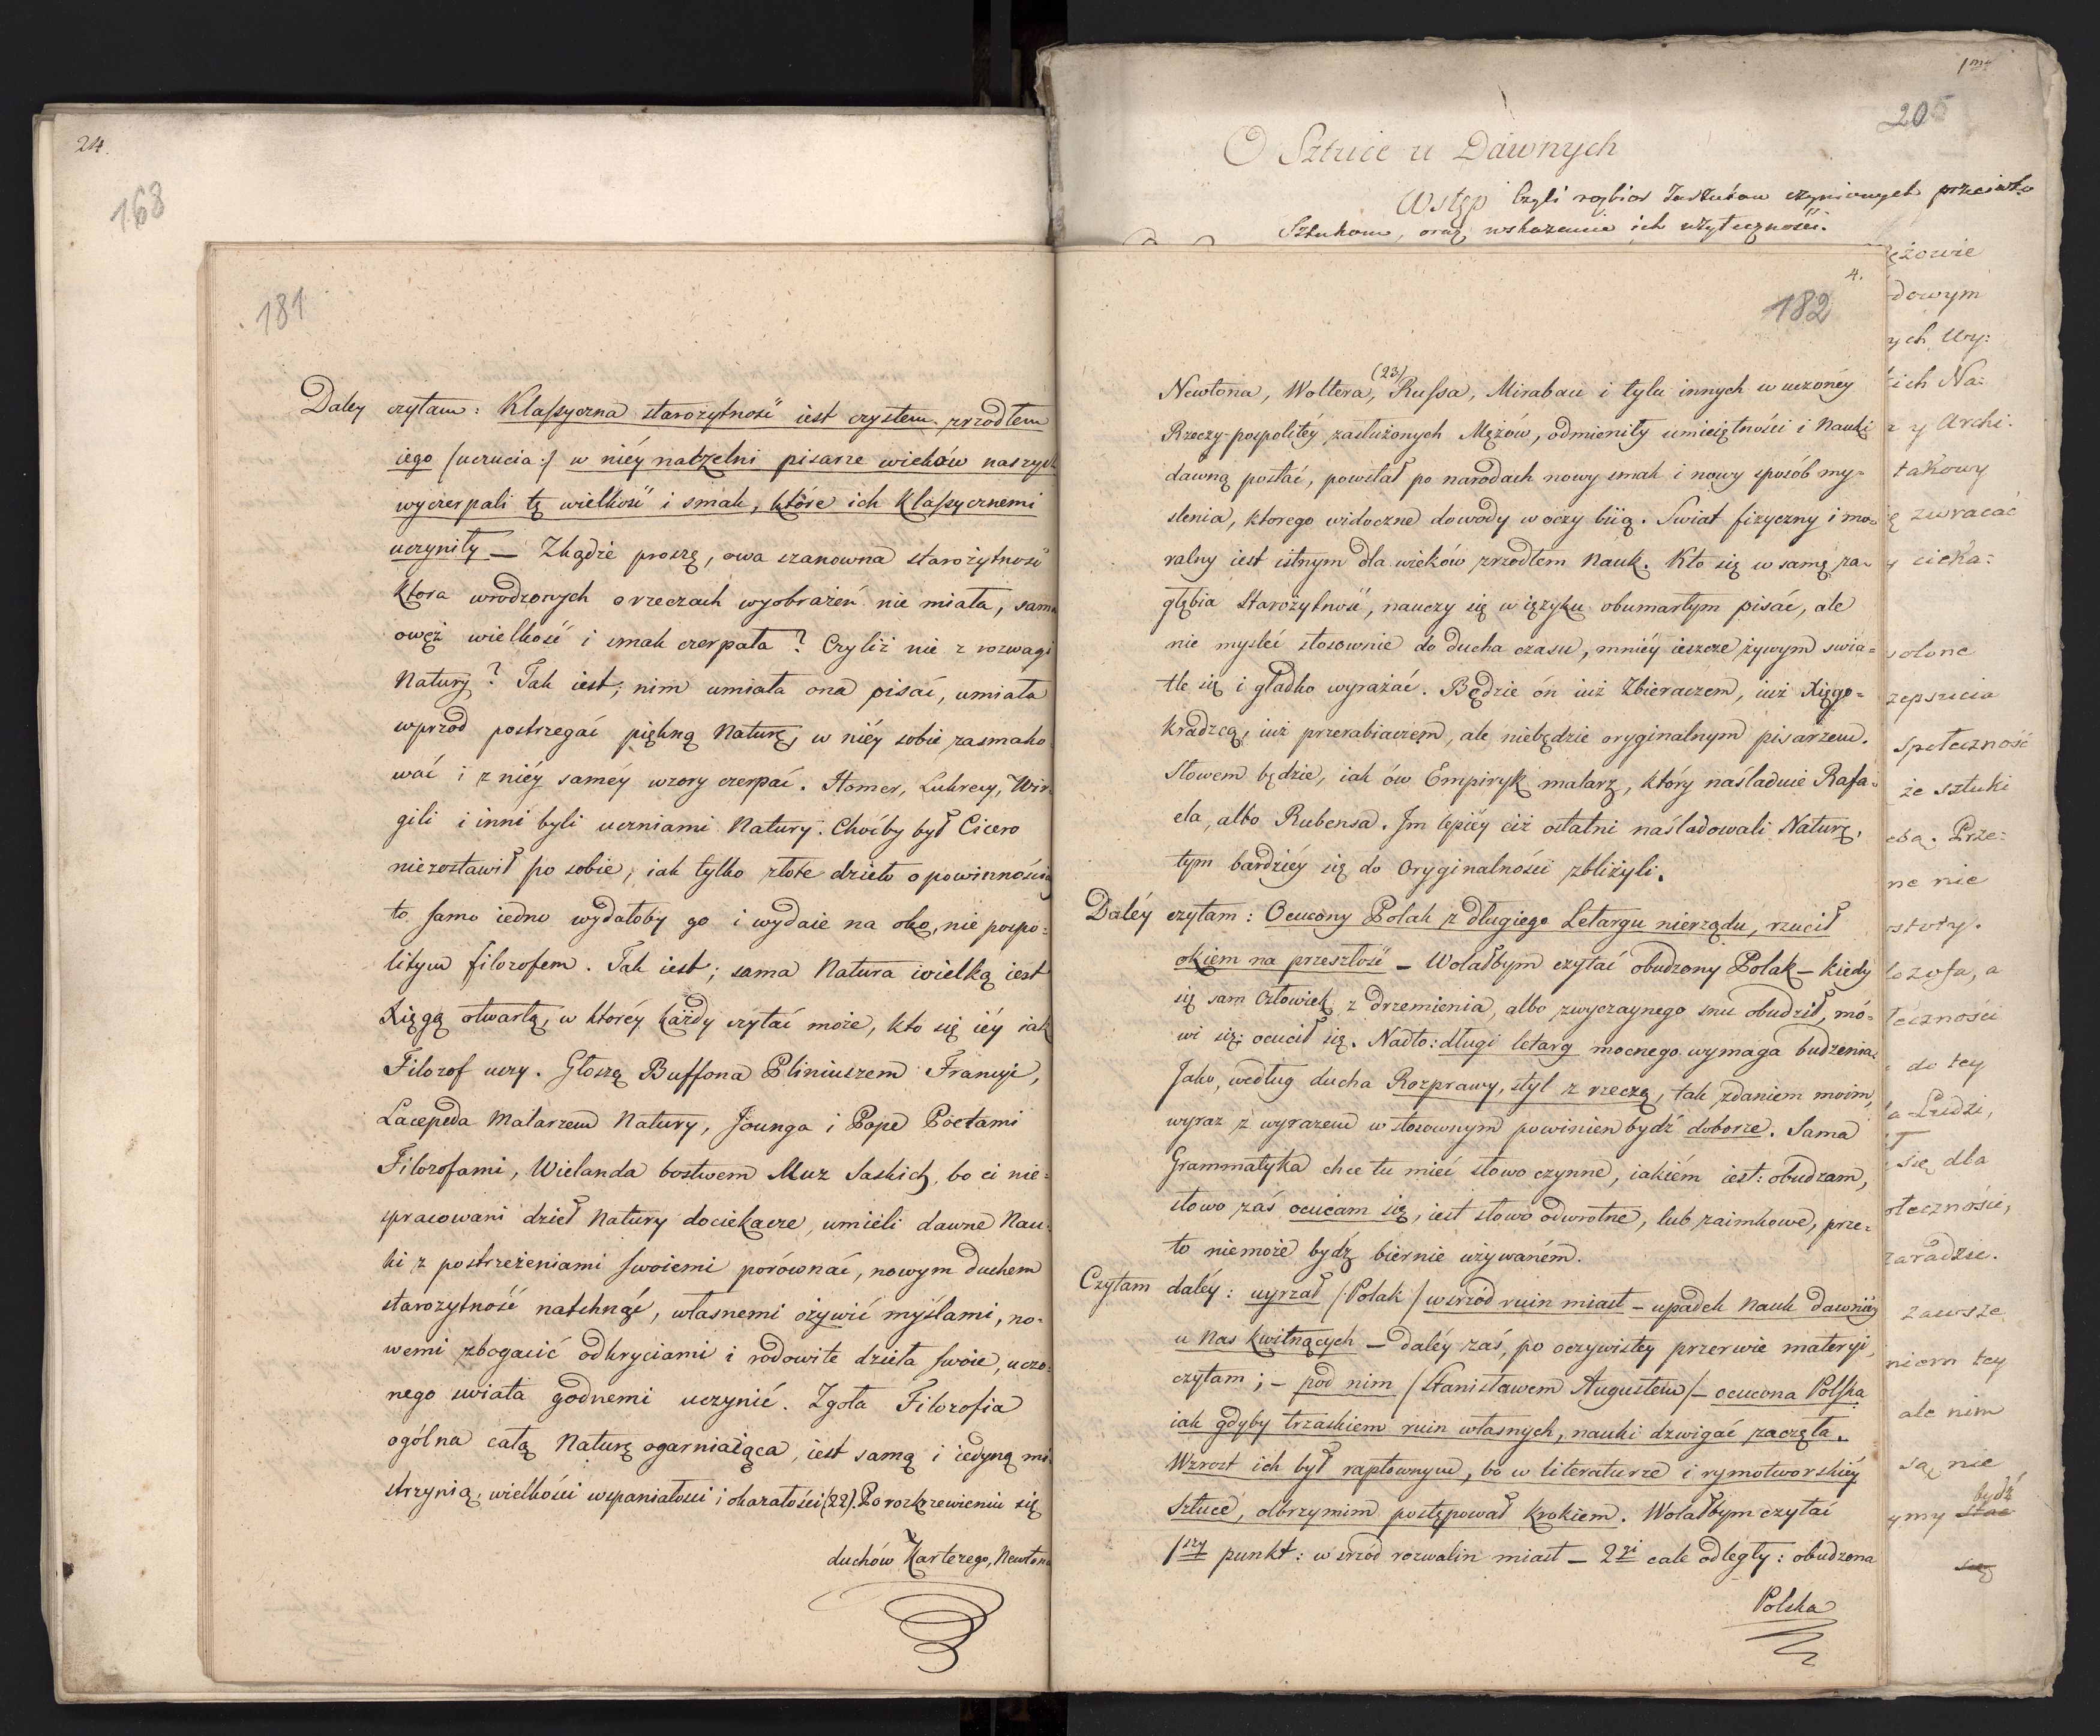 24.
168
181
Daley czytam: Klassyczna starożytność iest czystem zrzodłem
iego /uczucia:/ w niéy naczelni pisarze wieków naszych
wyczerpali tę wielkość i smak, które ich klassycznemi
uczyniły — Zkądże proszę, owa szanowna starożytność
która wrodzonych o rzeczach wyobrażeń nie miała, sama
owęż wielkość i smak czerpała? Czyliż nie z rozwagi
Natury? Tak iest; nim umiała ona pisać, umiała
wprzod postrzegać piękną Naturę, w niéy sobie zasmako
wać i z niéy saméy wzory czerpać. Homer, Lukrecy, Wir-
gili i inni byli uczniami Natury. Choćby był Cicero
niezostawił po sobie, iak tylko złote dzieło o powinnościa
to samo iedno wydałoby go i wydaie na oko, nie pospo=
litym filozofem. Tak iest; sama Natura wielką iest
Xięgą otwartą, w któréy każdy czytać może, kto się iéy iak
Filozof uczy. Głoszą Buffona Pliniuszem Francyi,
Lacepeda Malarzem Natury, Jounga i Pope Poetami
Filozofami, Wielanda bostwem Muz Saskich, bo ci nie=
spracowani dzieł Natury dociekacze, umieli dawne Nau-
ki z postrzeżeniami swoiemi porównać, nowym duchem
starożytność natchnąć, własnemi ożywić myślami, no-
wemi zbogacić odkryciami i rodowite dzieła swoie, uczo-
nego swiata godnemi uczynić. Zgoła Filozofia
ogólna całą Naturę ogarniaiąca, iest samą i iedyną mi-
strzynią, wielkości wspaniałości i okazałości (22). Po rozkrzewieniu się
duchów Karterego, Newtona
1mo
205
O Sztuce u Dawnych
Wstęp Czyli rozbior Zarzutow czynionych przeciwko
Sztukom, oraz wskazanie ich użyteczności.
4.
182
(23)
Newtona, Woltera, Russa, Mirabau i tylu innych w uczonéy
Rzeczy-pospolitéy zasłużonych Mężów, odmieniły umieiętności i Nauki
dawną postać, powstał po narodach nowy smak i nowy sposób my=
slenia, ktorego widoczne dowody w oczy biią. Swiat fizyczny i mo=
ralny iest istnym dla wieków zrzodłem Nauk. Kto się w samę za-
głębia Starożytność, nauczy się w ięzyku obumarłym pisać, ale
nie mysleć stosownie do ducha czasu, mniéy ieszcze żywym swia=
tle się i gładko wyrażać. Będzie ón iuż Zbieraczem, iuż Xięgo=
kradzcą, iuż przerabiaczem, ale niebędzie oryginalnym pisarzem.
Słowem będzie, iak ów Empiryk malarz, który naśladuie Rafa=
ela, albo Rubensa. Im lepiéy ciż ostatni naśladowali Naturę,
tym bardziéy się do Oryginalności zbliżyli.
Daléy czytam: Ocucony Polak z długiego Letargu nierządu, rzucił
okiem na przeszłość — Wolałbym czytać obudzony Polak — kiedy
się sam Człowiek z drzemienia, albo zwyczaynego snu obudził, mó=
wi się: ocucił się. Nadto: długi letarg mocnego wymaga budzenia.
Jako, według ducha Rozprawy, styl z rzeczą, tak zdaniem moim,
wyraz z wyrazem w stosownym powinien bydź doborze. Sama
Grammatyka chce tu mieć słowo czynne, iakiém iest: obudzam,
słowo zaś ocucam się, iest słowo odwrotne, lub zaimkowe, prze=
to niemoże bydź biernie używaném.
Czytam daléy: uyrzał /Polak/ wsrzód ruin miast — upadek Nauk dawniéy
u Nas kwitnących — daléy zaś, po oczywistey przerwie materyi,
czytam; — pod nim /Stanisławem Augustem/ — ocucona Polska
iak gdyby trzaskiem ruin własnych, nauki dzwigać zaczęła.
Wzrost ich był raptownym, bo w literaturze i rymotworskiéy
sztuce, olbrzymim postępował krokiem. Wolałbym czytać
1szy punkt: w srzód rozwalin miast — 2gi cale odległy: obudzona
Polska
ężowie
dowym
ych Wy:
ich Na:
z y Archi.
takowy
ę zwracać
y cieka:
solone
zepsucia
Społeczność
że sztuki
eba. Prze:
ne nie
stoty.
lozofa, a
łeczności
do tey
a-Ludzi,
się dla
ołeczności,
zaradzie.
zawsze
niom tey
ale nim
są nie
bydź
ymy stac
się